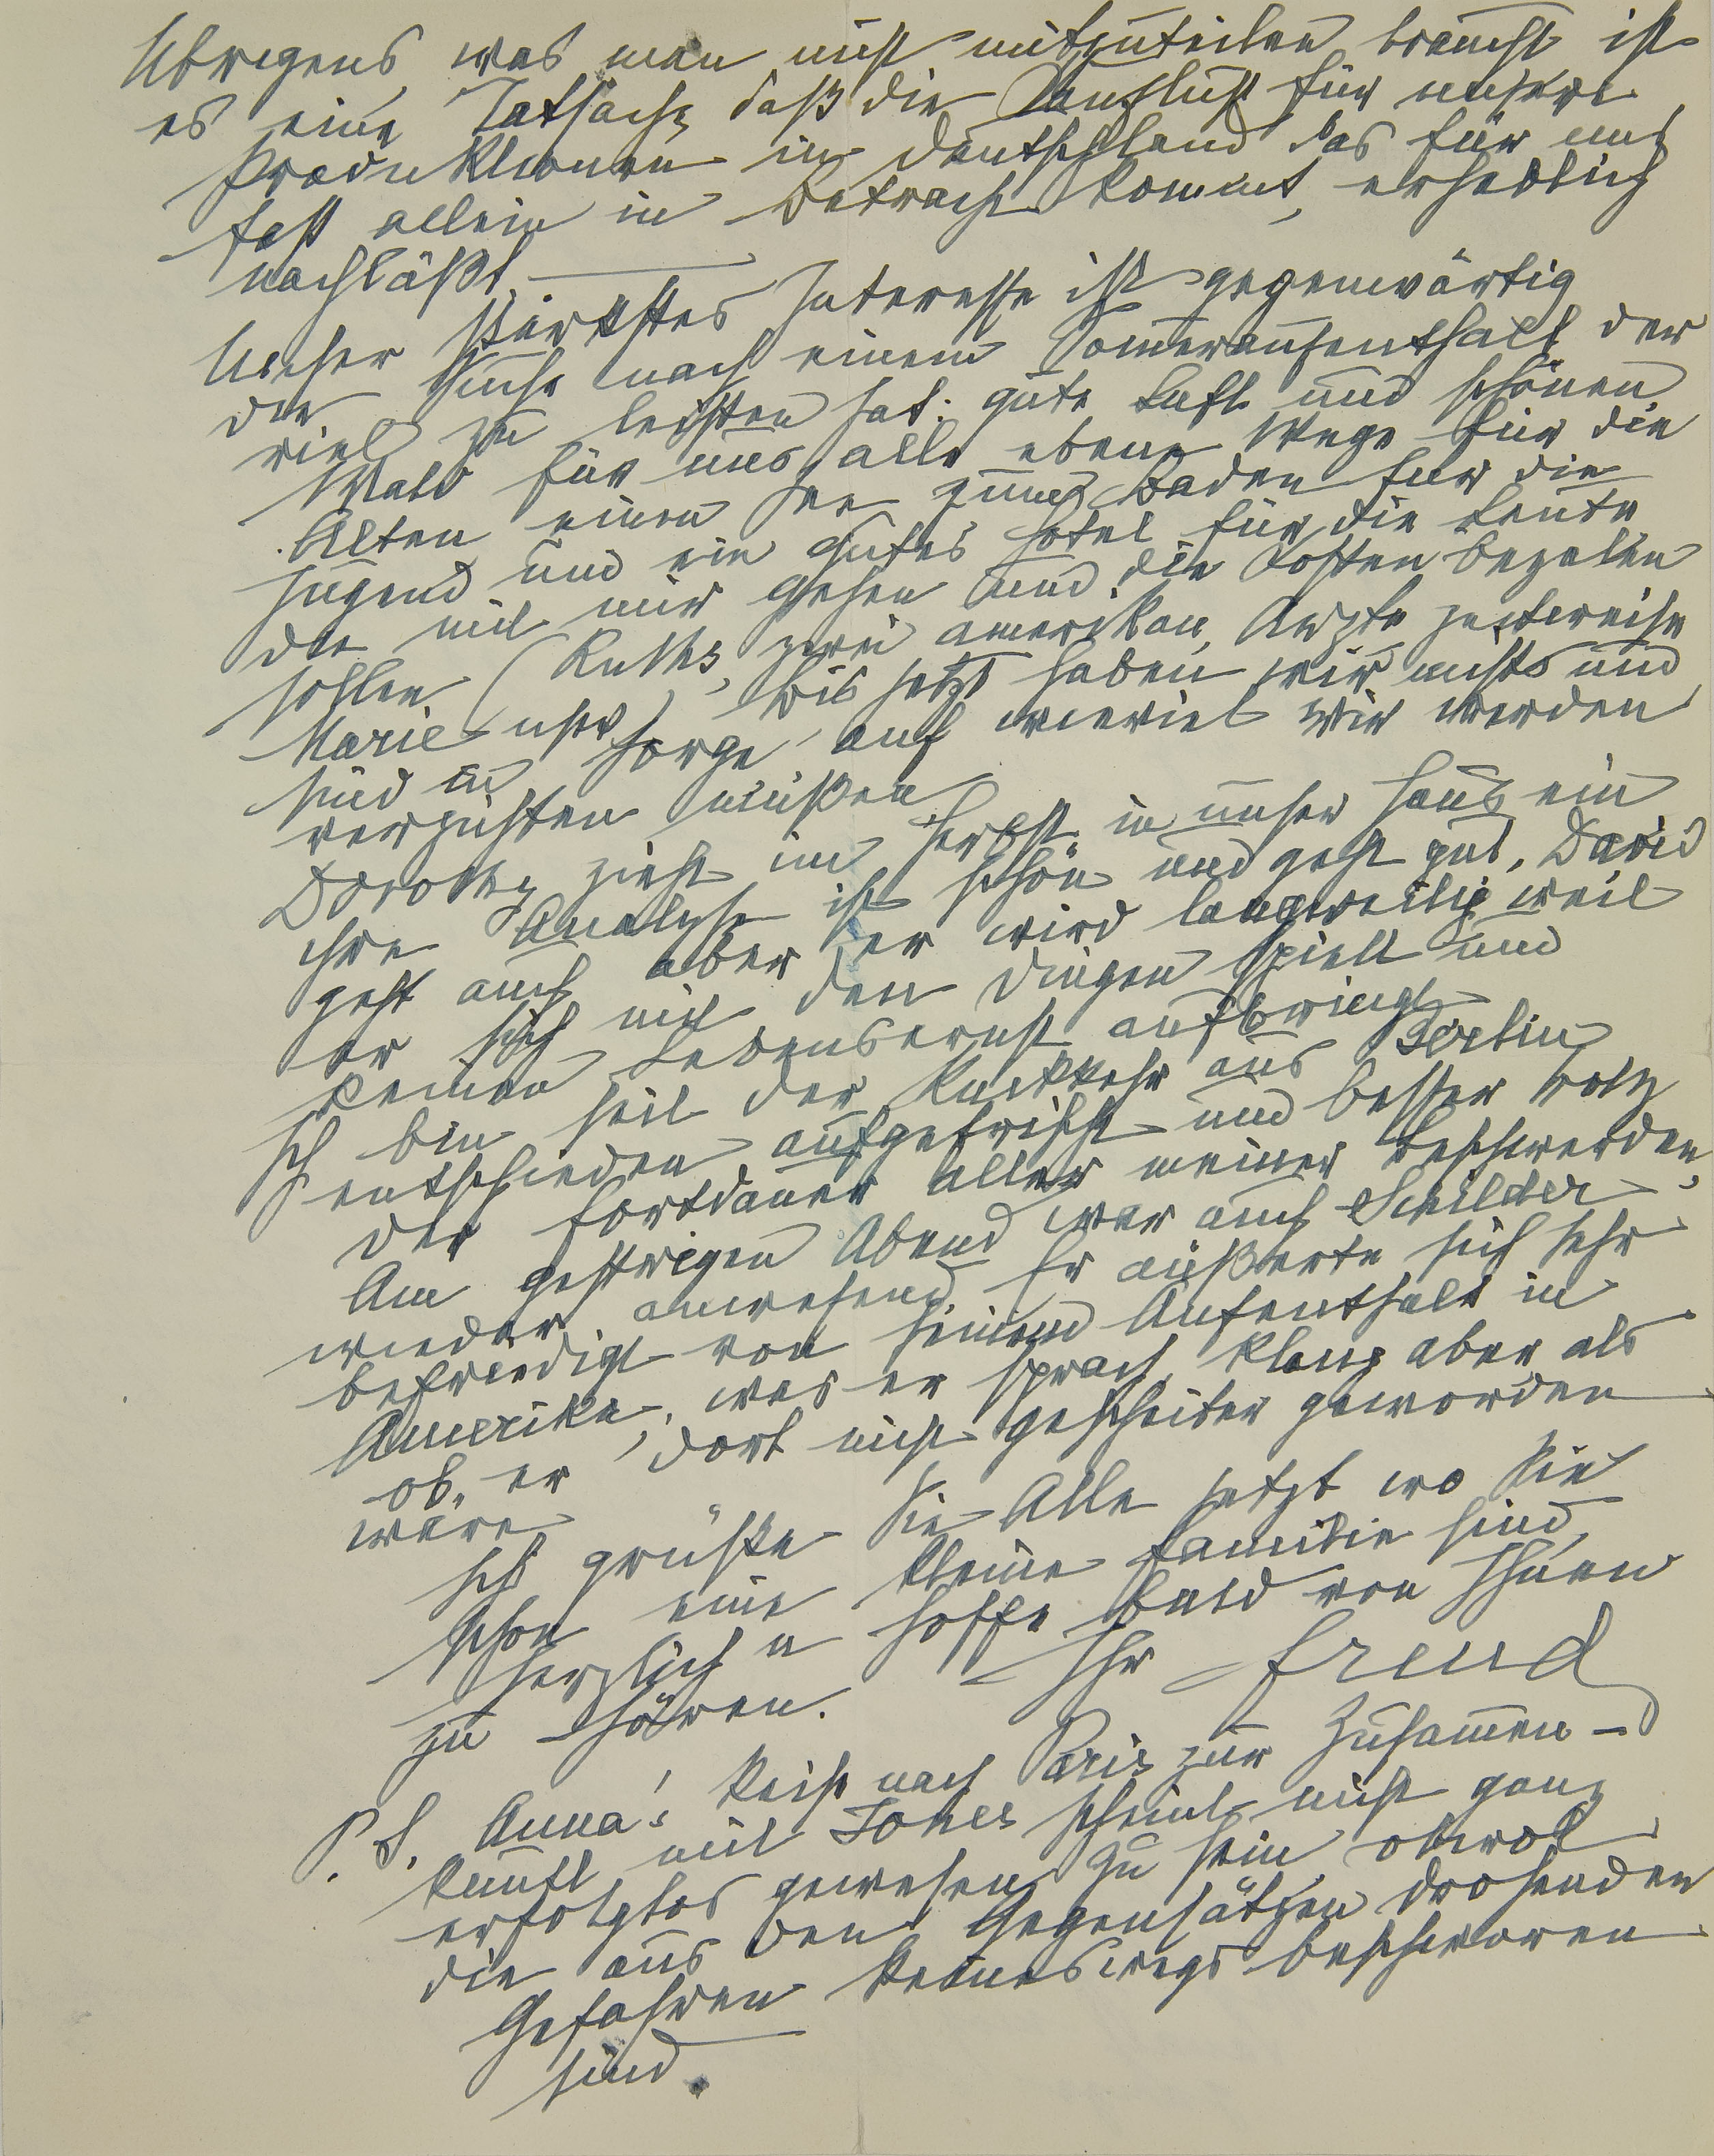 Übrigens was man nicht mitzuteilen braucht ist
es eine Tatsache, daß die Kauflust für unsere
Produktionen in Deutschland das für uns
fast allein in Betracht kommt, erheblich
nachläßt. —
Unser stärkstes Interesse ist gegenwärtig
die Suche nach einem Som̅eraufenthalt der
viel zu leisten hat: gute Luft und schönen
Wald für uns alle ebene Wege für die
Alten einen See zum Baden für die
Jugend und ein gutes Hotel für die Leute
die mit mir gehen und die Kosten bezalen
sollen (Ruths, zwei amerikan. Ärzte zeitweise
Marie usw) Bis jetzt haben wir nichts und
sind in Sorge auf wieviel wir werden
verzichten müßen
Dorothy zieht im Herbst in unser Haus ein
ihre Analyse ist schön und geht gut, David
geht auch aber er wird langweilig weil
er sich mit den Dingen spielt und
keinen Lebensernst aufbringt
Ich bin seit der Rückkehr aus Berlin
entschieden aufgefrischt und besser trotz
der Fortdauer aller meiner Beschwerden.
Am gestrigen Abend war auch Schilder
wieder anwesend Er äußerte sich sehr
befriedigt von seinem Aufenthalt in
Amerika, was er sprach, klang aber als
ob er dort nicht gescheiter geworden
wäre
Ich grüße Sie Alle jetzt wo Sie
schon eine kleine Familie sind,
herzlich u hoffe bald von Ihnen
zu hören. Ihr Freud
P.S. Anna's Reise nach Paris zur Zusam̅en-
kunft mit Jones scheint nicht ganz
erfolglos gewesen zu sein obwol
die aus den Gegensätzen drohenden
Gefahren keineswegs beschworen
sind.